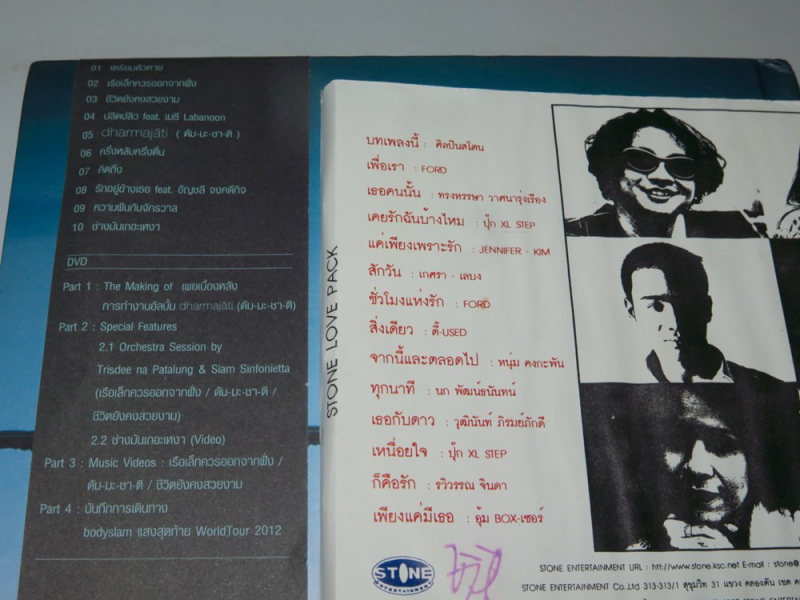 01 เตรียมตัวตาย
02 เรือเล็กควรออกจากฝั่ง
03 ชีวิตยังคงสวยงาม
04 ปลิดปลิว feat. เมธี Labanoon
05 dharmajāti ( ดัม-มะ-ชา-ติ )
06 ครึ่งหลับครึ่งตื่น
07 คิดถึง
08 รักอยู่ข้างเธอ feat. อัญชลี จงคดีกิจ
09 ความฝันกับจักรวาล
10 ช่างมันเถอะเหงา
DVD
Part 1 : The Making of เผยเบื้องหลัง
การทำงานอัลบั้ม dharmajāti (ดัม-มะ-ชา-ติ)
Part 2 : Special Features
2.1 Orchestra Session by
Trisdee na Patalung & Siam Sinfonietta
(เรือเล็กควรออกจากฝั่ง / ดัม-มะ-ชา-ติ /
ชีวิตยังคงสวยงาม)
2.2 ช่างมันเถอะเหงา (Video)
Part 3 : Music Videos : เรือเล็กควรออกจากฝั่ง /
ดัม-มะ-ชา-ติ / ชีวิตยังคงสวยงาม
Part 4 : บันทึกการเดินทาง
bodyslam แสงสุดท้าย WorldTour 2012
STONE LOVE PACK
บทเพลงนี้ : ศิลปินสโตน
เพื่อเรา : FORD
เธอคนนั้น : ทรงหรรษา วาศนารุ่งเรือง
เคยรักฉันบ้างไหม : ปุ๊ก XL STEP
แค่เพียงเพราะรัก : JENNIFER - KIM
สักวัน : เกศรา - เลบง
ชั่วโมงแห่งรัก : FORD
สิ่งเดียว : ตี้-USED
จากนี้และตลอดไป : หนุ่ม คงกะพัน
ทุกนาที : นก พัฒน์ธนันทน์
เธอกับดาว : วุฒินันท์ ภิรมย์ภักดี
เหนื่อยใจ : ปุ๊ก XL STEP
ก็คือรัก : รวิวรรณ จินดา
เพียงแค่มีเธอ : อุ้ม BOX-เซอร์
STONE
ENTERTAINMENT
STONE ENTERTAINMENT URL : htt://www.stone.ksc.net E-mail : stone@
STONE ENTERTAINMENT Co.,Ltd 313-313/1 สุขุมวิท 31 แขวง คลองตัน เขต